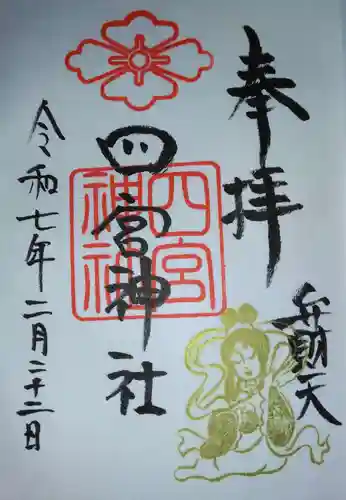 奉拝
弁財天
四宮神社
四宮神社
令和七年二月二十二日